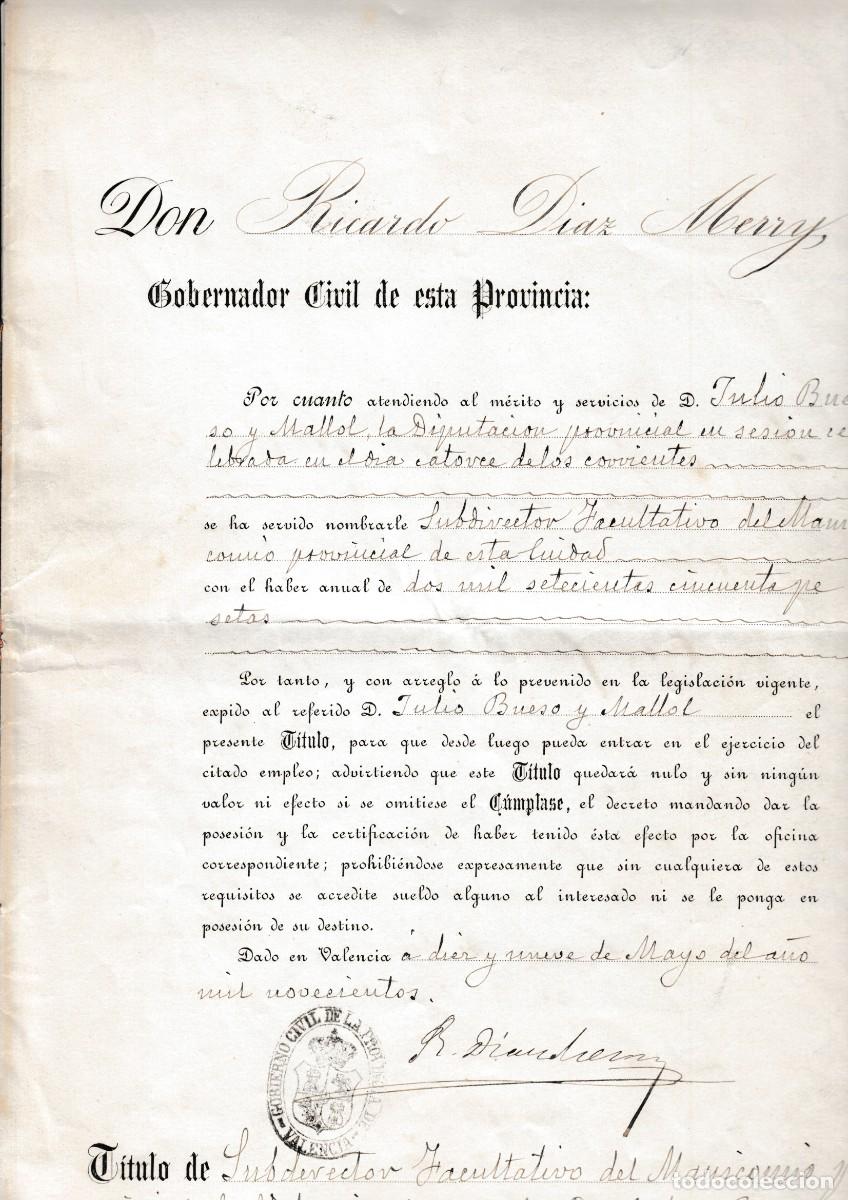 Don Ricardo Diaz Merry
Gobernador Civil de esta Provincia:
Por cuanto atendiendo al mérito y servicios de D. Julio Bue
so y Mallol, la Diputacion provincial en sesión ce
lebrada en el dia catorce de los corrientes
se ha servido nombrarle Subdirector Facultativo del Mani
comio provincial de esta Ciudad
con el haber anual de dos mil setecientas cincuenta pe
setas
Por tanto, y con arreglo á lo prevenido en la legislación vigente,
expido al referido D. Julio Bueso y Mallol el
presente Título, para que desde luego pueda entrar en el ejercicio del
citado empleo; advirtiendo que este Título quedará nulo y sin ningún
valor ni efecto si se omitiese el Cúmplase, el decreto mandando dar la
posesión y la certificación de haber tenido ésta efecto por la oficina
correspondiente; prohibiéndose expresamente que sin cualquiera de estos
requisitos se acredite sueldo alguno al interesado ni se le ponga en
posesión de su destino.
Dado en Valencia á diez y nueve de Mayo del año
mil novecientos.
R. Diaz Merry
GOBIERNO CIVIL DE LA PROVINCIA DE
VALENCIA
Título de Subdirector Facultativo del Manicomio
todocoleccion